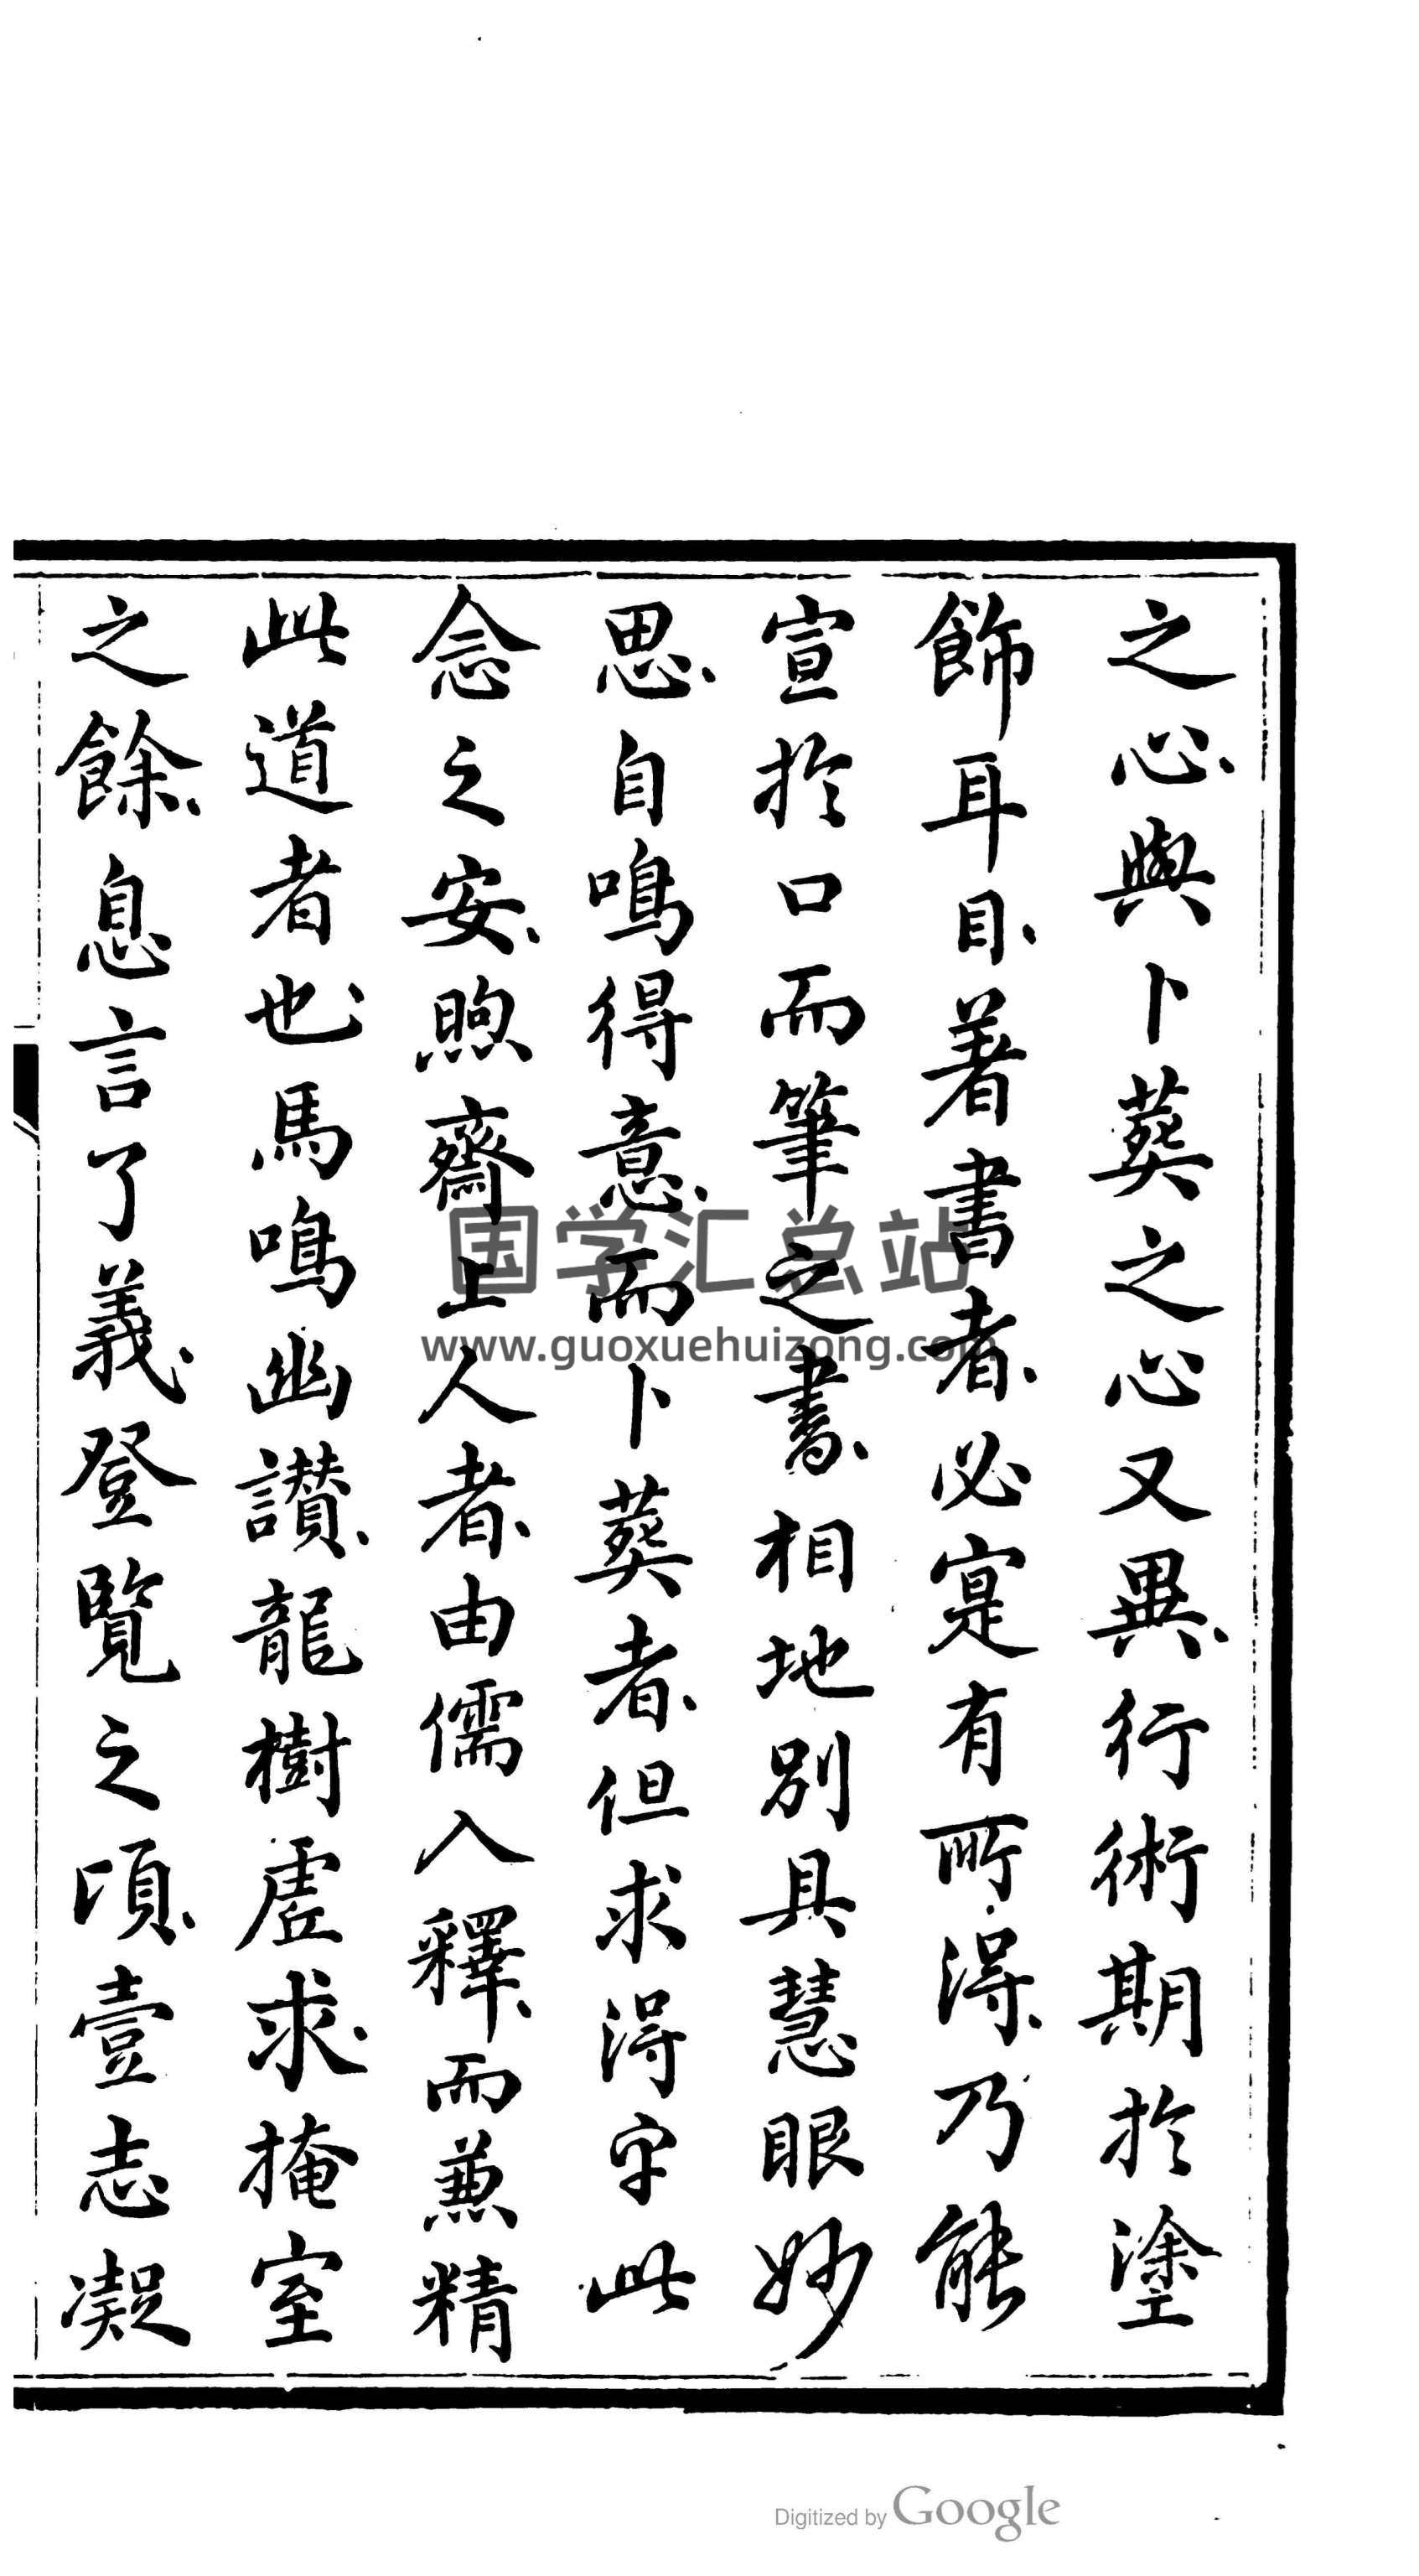 之心、與卜葬之心又異、行術期於塗
飾耳目、著書者、必寔有所得、乃能
宣於口而筆之書、相地別具慧眼妙
思、自鳴得意、而卜葬者、但求得牢此
念之安、煦齋上人者、由儒入釋、而兼精
此道者也、馬鳴幽讚、龍樹虛求、掩室
之餘、息言了義、登覽之頃、壹志凝
国学汇总站
www.guoxuehuizong.com
Digitized by Google